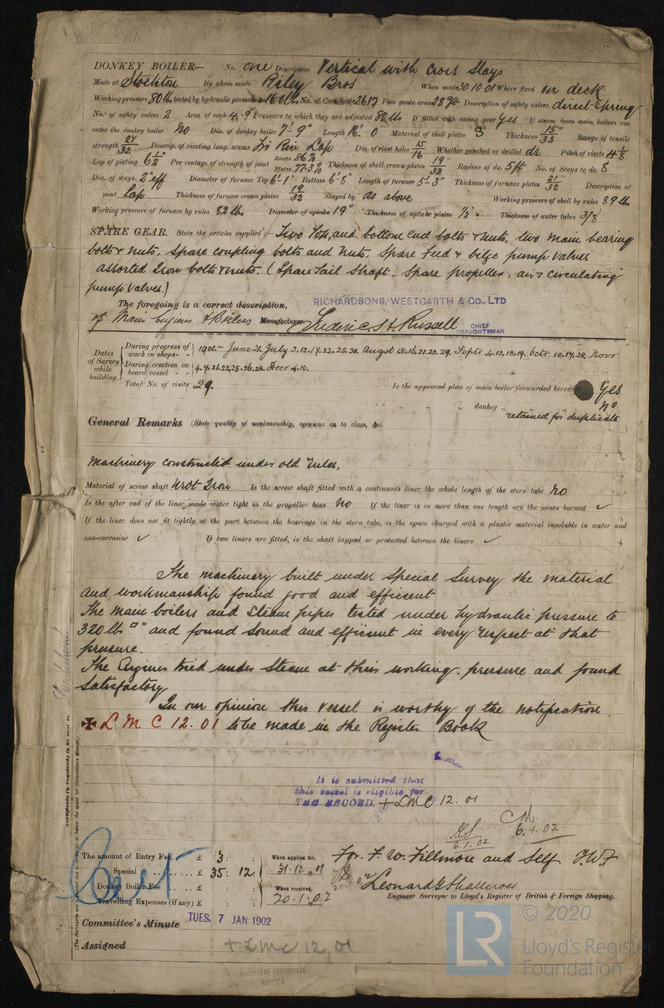 DONKEY BOILER— No. one Description Vertical with Cross Stays
Made at Stockton By whom made Riley Bros When made 30.10.01 Where fixed on deck
Working pressure 80 lb tested by hydraulic pressure to 160 lb No. of Certificate 2617 Fire grate area 28 Description of safety valves direct Spring
No. of safety valves 2 Area of each 4.9 Pressure to which they are adjusted 80 lb If fitted with easing gear yes If steam from main boilers can
enter the donkey boiler No Dia. of donkey boiler 7'-9" Length Material of shell plates S Thickness 15/32 Range of tensile
strength Descrip. of riveting long. seams Lap Dia. of rivet holes 15/16 Whether punched or drilled dr Pitch of rivets
Lap of plating 6½" Per centage of strength of joint Rivets Plates 77.3% Thickness of shell crown plates 19/32 Radius of do. 5ft No. of Stays to do. 8
Dia. of stays. 2" eff Diameter of furnace Top 6'-1" Bottom 6'-8" Length of furnace 5'-3" Thickness of furnace plates 21/32 Description of
joint Lap Thickness of furnace crown plates 19/32 Stayed by as above Working pressure of shell by rules 89 lb
Working pressure of furnace by rules 82 lb Diameter of uptake 19" Thickness of uptake plates ½" Thickness of water tubes 3/8
SPARE GEAR. State the articles supplied:— Two Top and bottom end bolts & nuts, two main bearing
bolts & nuts, Spare coupling bolts and nuts, Spare Feed & bilge pump valves
assorted Iron bolts & nuts. (Spare tail Shaft, Spare propeller, air & Circulating
pump valves.)
The foregoing is a correct description,
RICHARDSONS, WESTGARTH & Co., LTD
of Main Engines & Boilers Manufacturer. Frederick H Russell CHIEF DRAUGHTSMAN
Dates of Survey while building
During progress of work in shops - - 1901 - June 21. July 2.12.17.22.25.30. Augst 15.16.21.22.29. Sept. 4.12.18.19. Octr. 10.17.28. Novr
During erection on board vessel - - 4.7.21.22.25.26.28. Decr 4.10.
Total No. of visits 29.
Is the approved plan of main boiler forwarded herewith Yes
" " donkey " " No
"retained for duplicate
General Remarks (State quality of workmanship, opinions as to class, &c.
Machinery constructed under old rules.
Material of screw shaft Wrot Iron Is the screw shaft fitted with a continuous liner the whole length of the stern tube No
Is the after end of the liner made water tight in the propeller boss No If the liner is in more than one length are the joints burned ✓
If the liner does not fit tightly at the part between the bearings in the stern tube, is the space charged with a plastic material insoluble in water and
non-corrosive ✓ If two liners are fitted, is the shaft lapped or protected between the liners ✓
The machinery built under Special Survey the material
and workmanship found good and efficient
The main boilers and Steam pipes tested under hydraulic pressure to
320 lb □" and found Sound and efficient in every respect at that
pressure.
The Engines tried under Steam at their working pressure and found
Satisfactory
In our opinion this vessel is worthy of the notification
✠ L M C 12.01 to be made in the Register Book
It is submitted that
this vessel is eligible for
THE RECORD. + LMC 12.01
C.M.
6.1.02
6.1.02
The amount of Entry Fee. £ 3 : :
Special . . . . £ 35 : 12 :
Donkey Boiler Fee £ : :
Travelling Expenses (if any) £ : :
When applied for, 31.12.01
When received, 20.1.02
For F. W. Fillmore and Self FWF
Leonard G Shallcross
Engineer Surveyor to Lloyd's Register of British & Foreign Shipping.
Committee's Minute TUES. 7 JAN 1902
Assigned + LMC 12.01
© 2020
LR
Lloyd's Register
Foundation